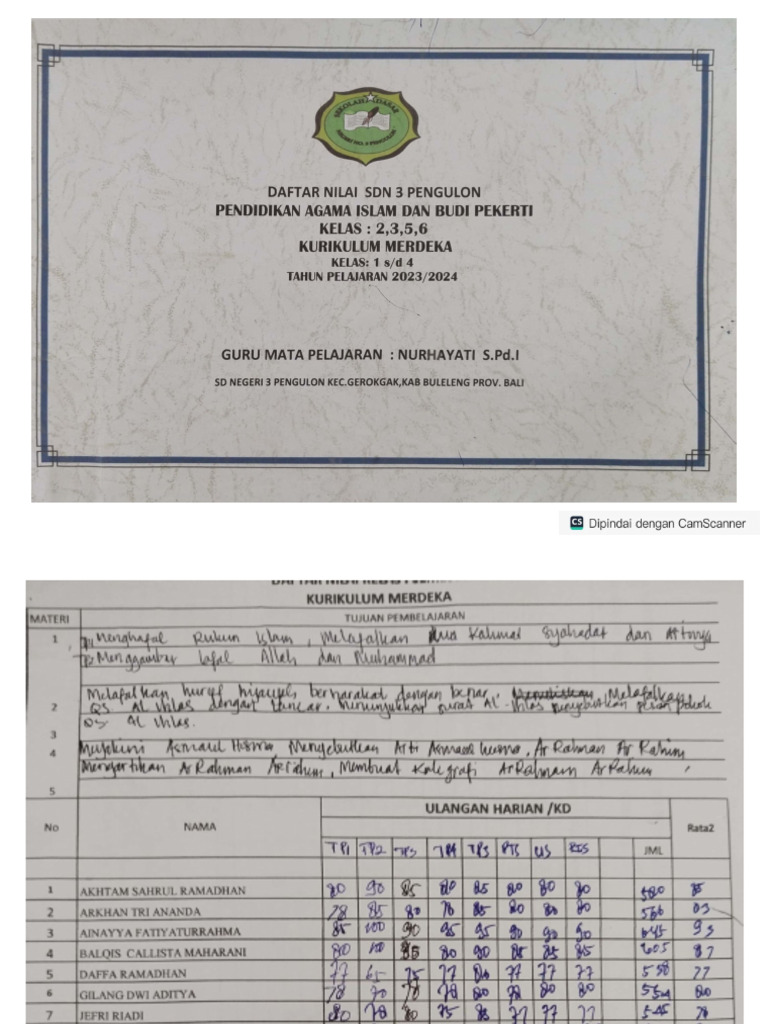 DAFTAR NILAI SDN 3 PENGULON
PENDIDIKAN AGAMA ISLAM DAN BUDI PEKERTI
KELAS : 2,3,5,6
KURIKULUM MERDEKA
KELAS: 1 s/d 4
TAHUN PELAJARAN 2023/2024
GURU MATA PELAJARAN : NURHAYATI S.Pd.I
SD NEGERI 3 PENGULON KEC.GEROKGAK,KAB BULELENG PROV. BALI
CS Dipindai dengan CamScanner
KURIKULUM MERDEKA
MATERI TUJUAN PEMBELAJARAN
1 Menghafal Rukun Islam, Melafalkan dua Kalimat Syahadat dan Artinya
Menggambar lafal Allah dan Muhammad
Melafalkan huruf hijaiyah berharakat dengan benar, Melafalkan
2 QS Al Ihlas dengan lancar, menunjukkan surat Al-Ihlas menyebutkan pesan pokok
QS Al Ihlas.
3
4 Asmaul Husna Mengebutkan Arti Asmaul husna, Ar Rahman Ar Rahim
Mengartikan Ar Rahman Ar rahim, Membuat Kaligrafi Ar Rahman Ar Rahim
5
No NAMA ULANGAN HARIAN /KD Rata2
TP1 TP2 TP3 TP4 TP5 PTS US JML
1 AKHTAM SAHRUL RAMADHAN 80 90 85 80 85 80 80 80
2 ARKHAN TRI ANANDA 78 85 80 78 85 80 80 80
3 AINAYYA FATIYATURRAHMA 85 100 90 95 95 90 90 90 93
4 BALQIS CALLISTA MAHARANI 80 100 85 80 90 85 85 85 605 87
5 DAFFA RAMADHAN 77 65 75 77 80 77 77 77 77
6 GILANG DWI ADITYA 78 70 78 78 80 78 80 80
7 JEFRI RIADI 80 78 80 75 77 77 77 545 78